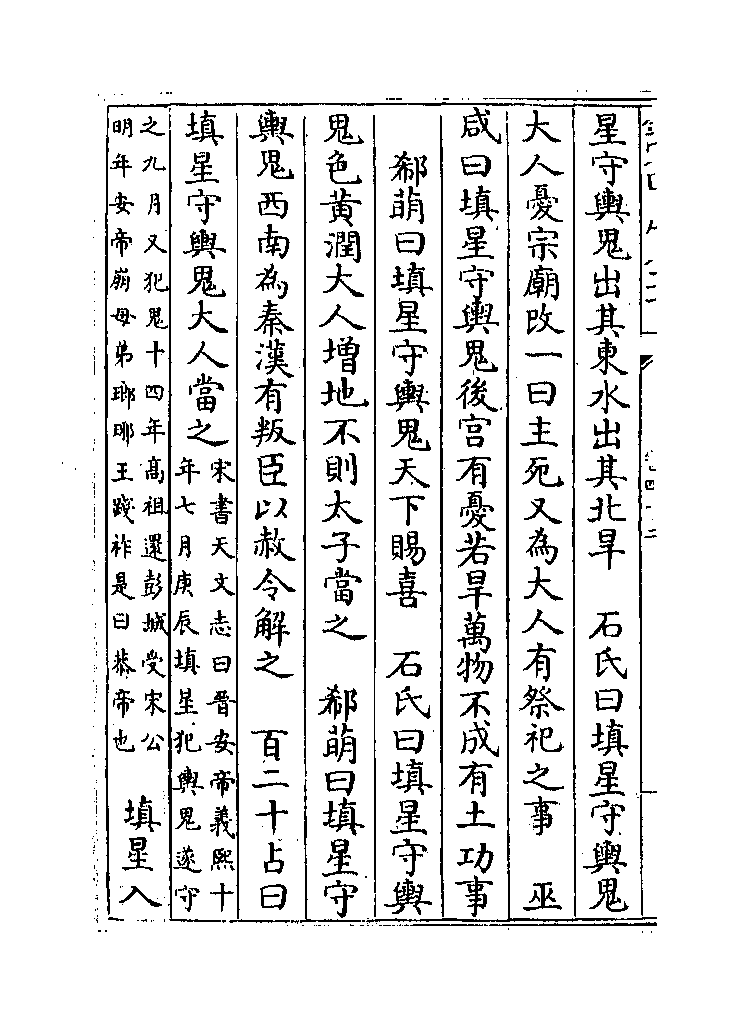 星守輿鬼出其東水出其北旱　石氏曰填星守輿鬼
大人憂宗廟改一曰主死又為大人有祭祀之事　巫
咸曰填星守輿鬼後宫有憂若旱萬物不成有土功事
郗萌曰填星守輿鬼天下賜喜　石氏曰填星守輿
鬼色黄潤大人增地不則太子當之　郗萌曰填星守
輿鬼西南為秦漢有叛臣以赦令解之　百二十占曰
填星守輿鬼大人當之
宋書天文志曰晉安帝義熙十
年七月庚辰填星犯輿鬼遂守
之九月又犯鬼十四年髙祖還彭城受宋公
明年安帝崩母弟瑯琊王踐祚是曰恭帝也
填星入